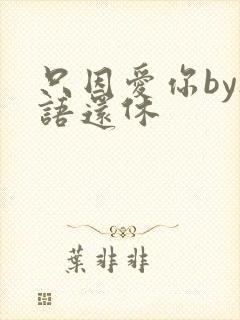 只因愛你by
語還休
葉非非